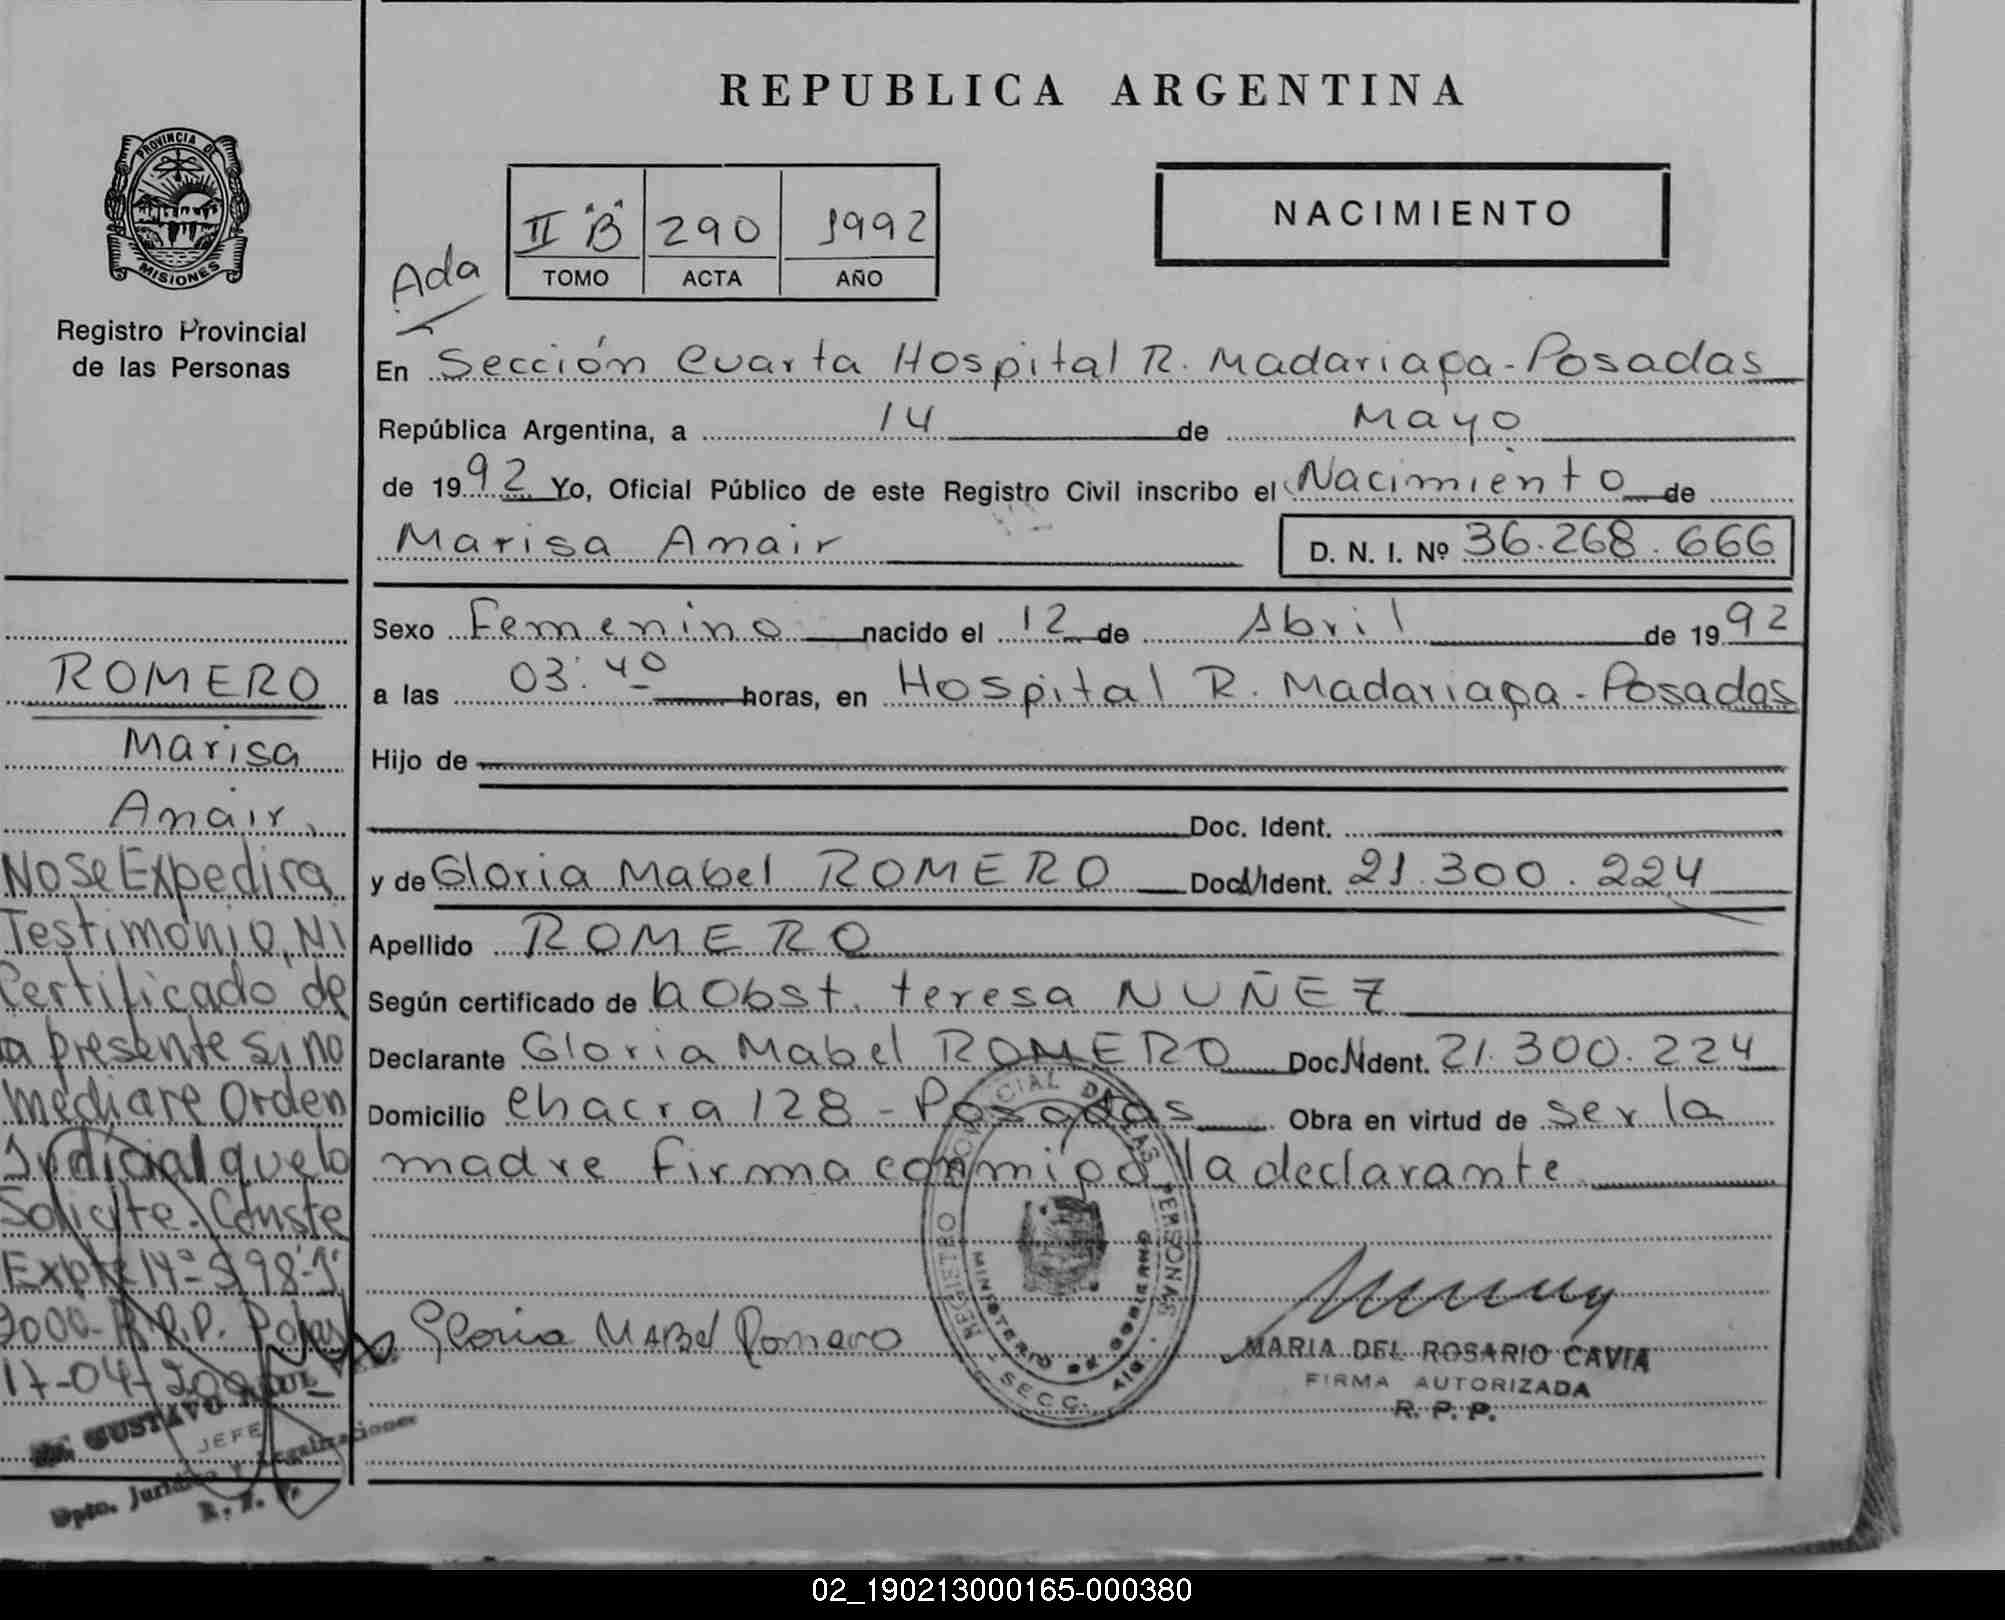 REPUBLICA ARGENTINA
PROVINCIA DE
MISIONES
Registro Provincial
de las Personas
II "B" 290 1992
TOMO ACTA AÑO
NACIMIENTO
Ada
En Sección Cuarta Hospital R. Madariaga - Posadas
República Argentina, a 14 de Mayo
de 1992 Yo, Oficial Público de este Registro Civil inscribo el Nacimiento de
Marisa Anair D. N. I. Nº 36.268.666
Sexo Femenino nacido el 12 de Abril de 1992
a las 03:40 horas, en Hospital R. Madariaga - Posadas
Hijo de
Doc. Ident.
y de Gloria Mabel ROMERO Doc. Ident. 21.300.224
Apellido ROMERO
Según certificado de la Obst. teresa NUÑEZ
Declarante Gloria Mabel ROMERO Doc. Ident. 21.300.224
Domicilio Chacra 128 - Posadas Obra en virtud de ser la
madre firma conmigo la declarante
Gloria Mabel Romero
MARIA DEL ROSARIO CAVIA
FIRMA AUTORIZADA
R. P. P.
REGISTRO PROVINCIAL DE LAS PERSONAS
MINISTERIO DE GOBIERNO
SECC.
ROMERO
Marisa
Anair,
No Se Expedira
Testimonio, Ni
Certificado de
la presente si no
mediare Orden
Judicial que lo
Solicite. Conste
Expte Nº 998
2000- R.P.P.
17-04-2000
GUSTAVO
JEFE
Dpto. Jurídico y Legalizaciones
R. P. P.
02_190213000165-000380